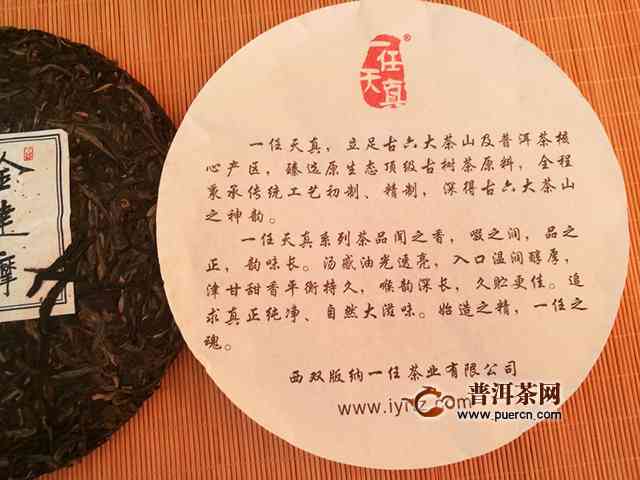 一任天真®
一任天真，立足古六大茶山及普洱茶核
心产区，臻选原生态顶级古树茶原料，全程
秉承传统工艺初制、精制，深得古六大茶山
之神韵。
一任天真系列茶品闻之香，啜之润，品之
正，韵味长。汤感油光透亮，入口温润醇厚，
津甘甜香平衡持久，喉韵深长，久贮更佳。追
求真正纯净、自然大滋味。始造之精，一任之
魂。
西双版纳一任茶业有限公司
普洱茶网
www.puercn.com
達摩